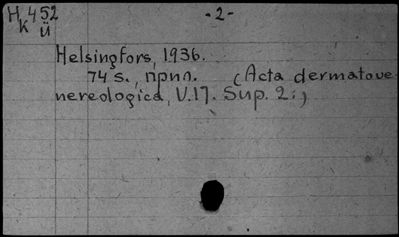 H 452 -2-
K ü
Helsingfors, 1936.
74 s., прил. (Acta dermatove-
nereologica, V.17. Sup. 2.)